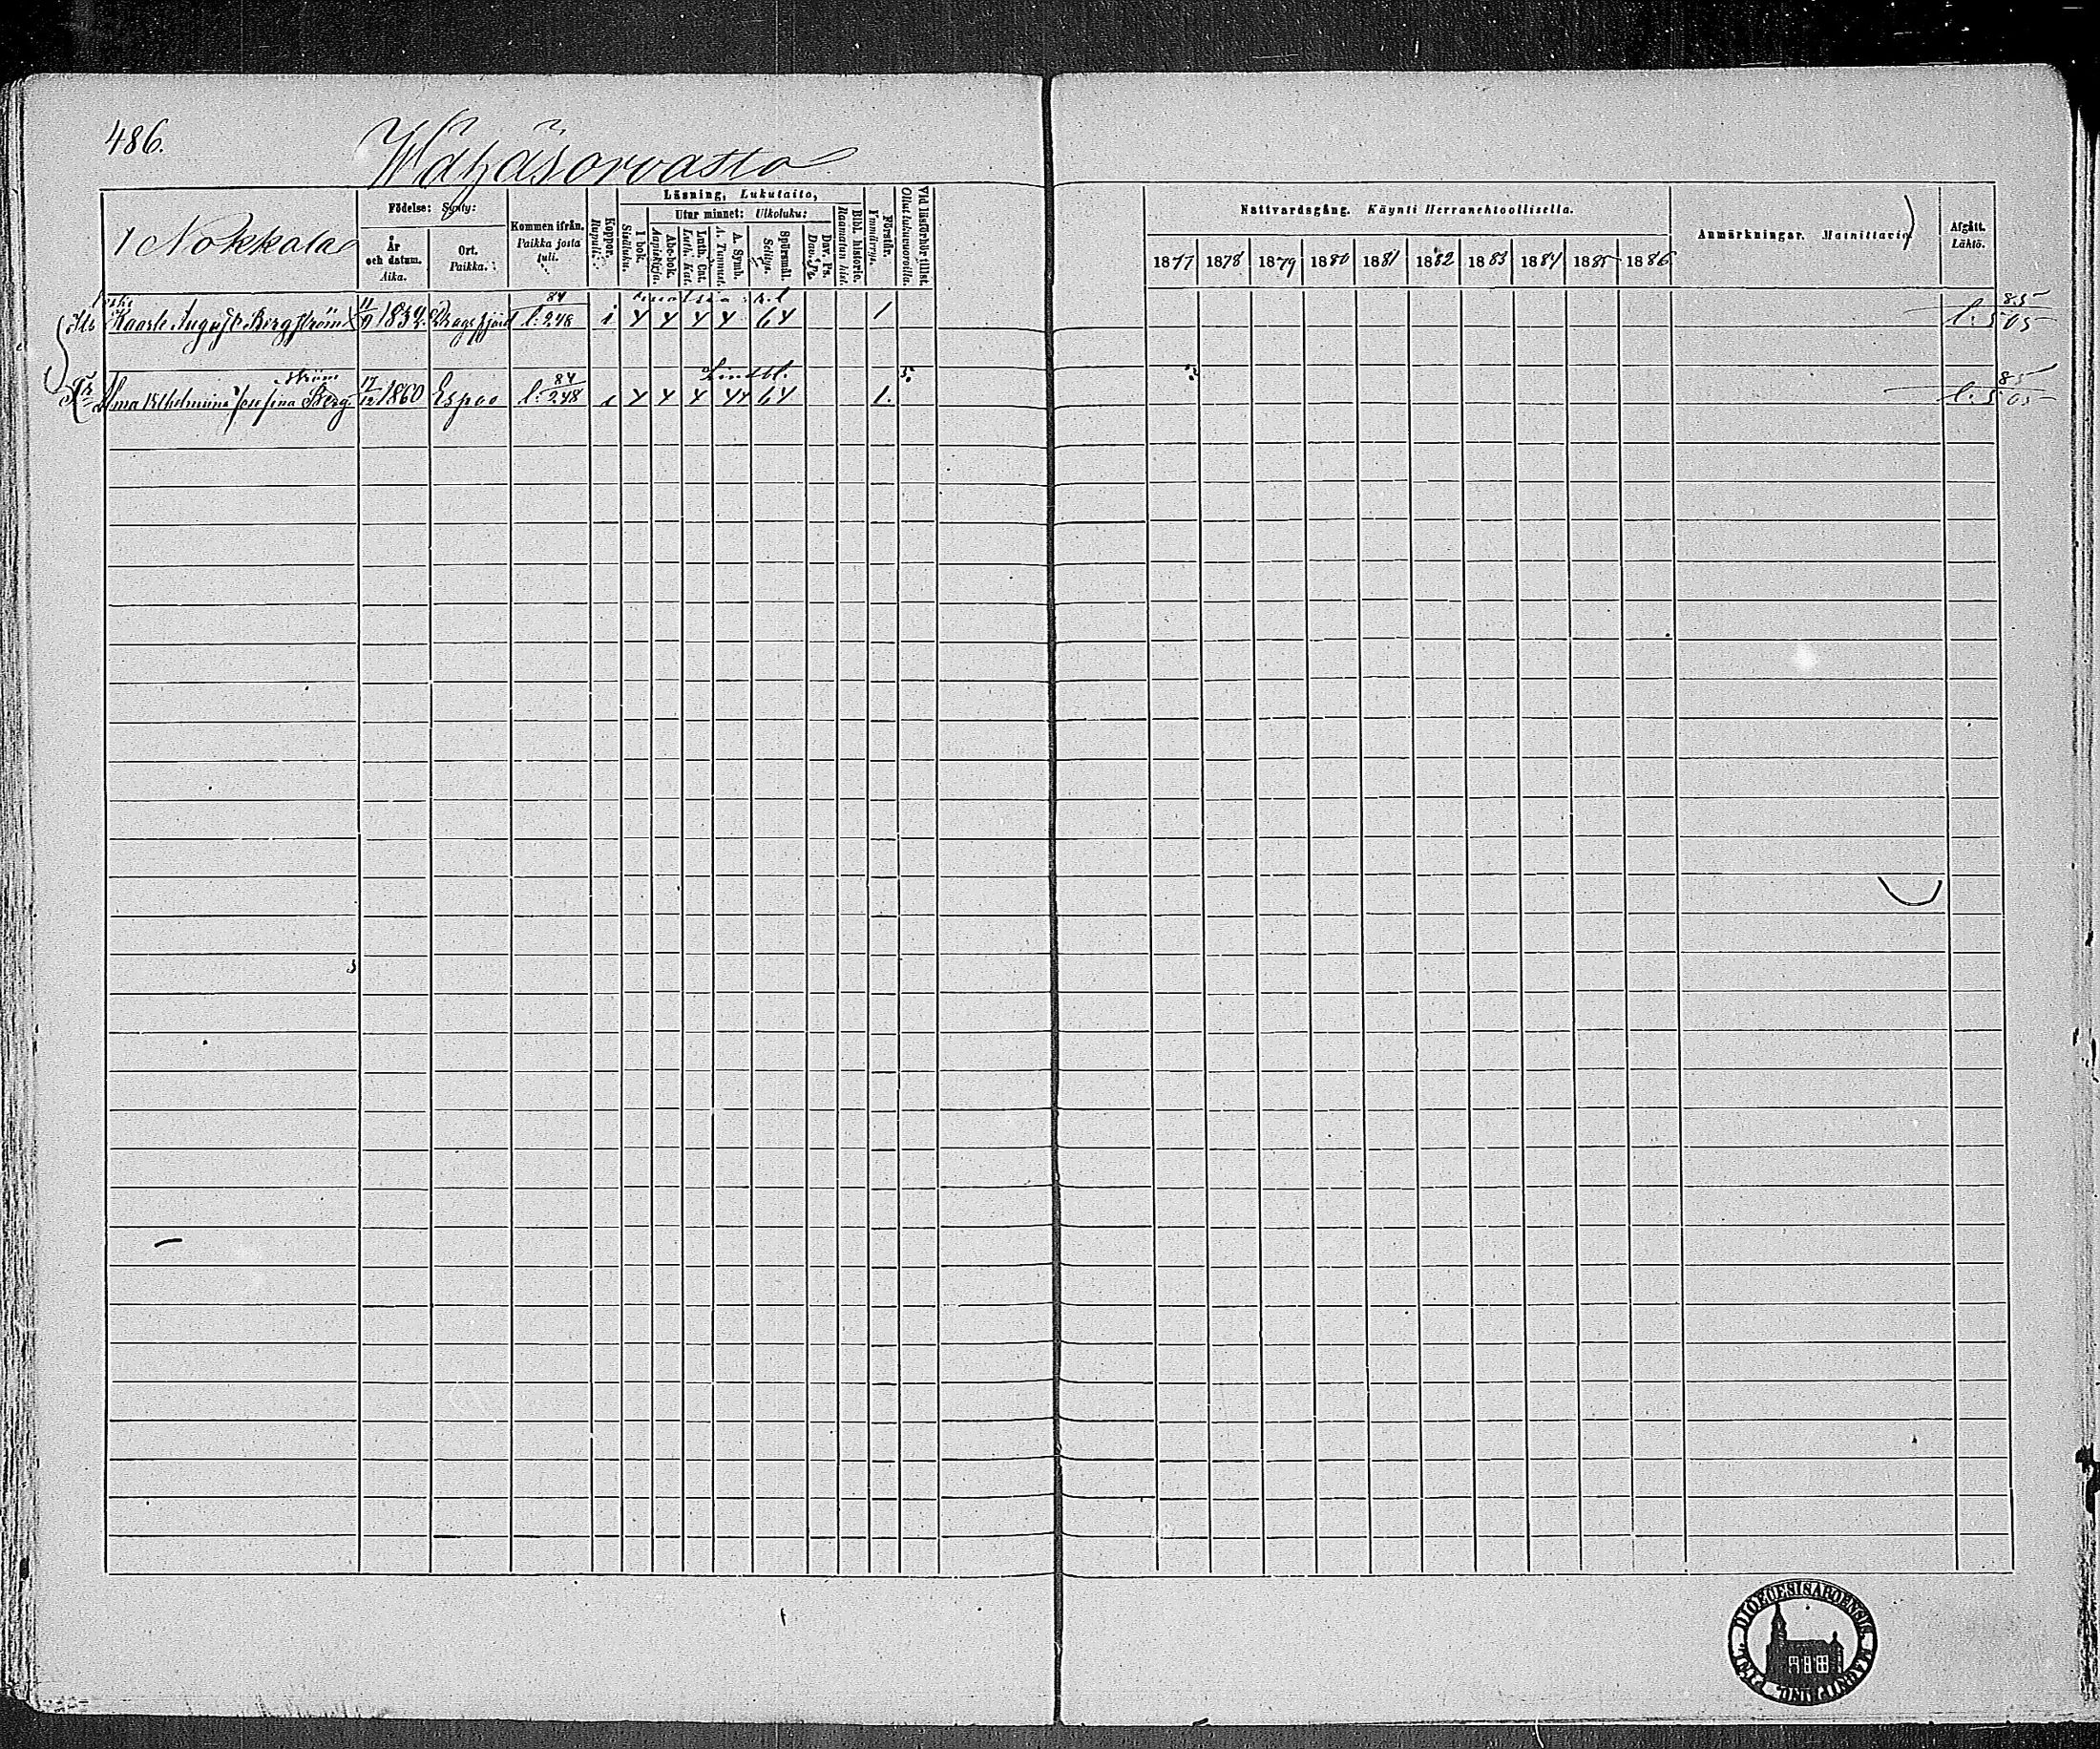 486.
Wähäsorvasto
1 Nokkala
Födelse: Synty:
År och datum. Aika.
Ort. Paikka.
Kommen ifrån. Paikka josta tuli.
Koppor. Rupuli.
Läsning, Lukutaito,
Utur minnet: Ulkoluku:
I bok. Sisäluku.
Abc-bok. Aapiskirja.
Luth. Cat. Luth. Kat.
A. Symb. A. Tunnust.
Spörsmål. Selitys.
Dav. Ps. Dav. Ps.
Bibl. historie. Raamatun hist.
Förstår. Ymmärrys.
Vid läsförhör tillst. Ollut lukuvuoroilla.
Nattvardsgång. Käynti Herranehtoollisella.
1877 1878 1879 1880 1881 1882 1883 1884 1885 1886
Anmärkningar. Mainittavia
Afgått. Lähtö.
Kaarle August Bergström 11/9 1832. Dragsfjärd 84 l: 248 i 4 4 4 4 64 1 85 l: 505
Lindbl.
Alma Wilhelmina Josefina Bergström 17/12 1860 Espoo 84 l: 248 i 4 4 4 44 64 1. 5. 85 l: 505